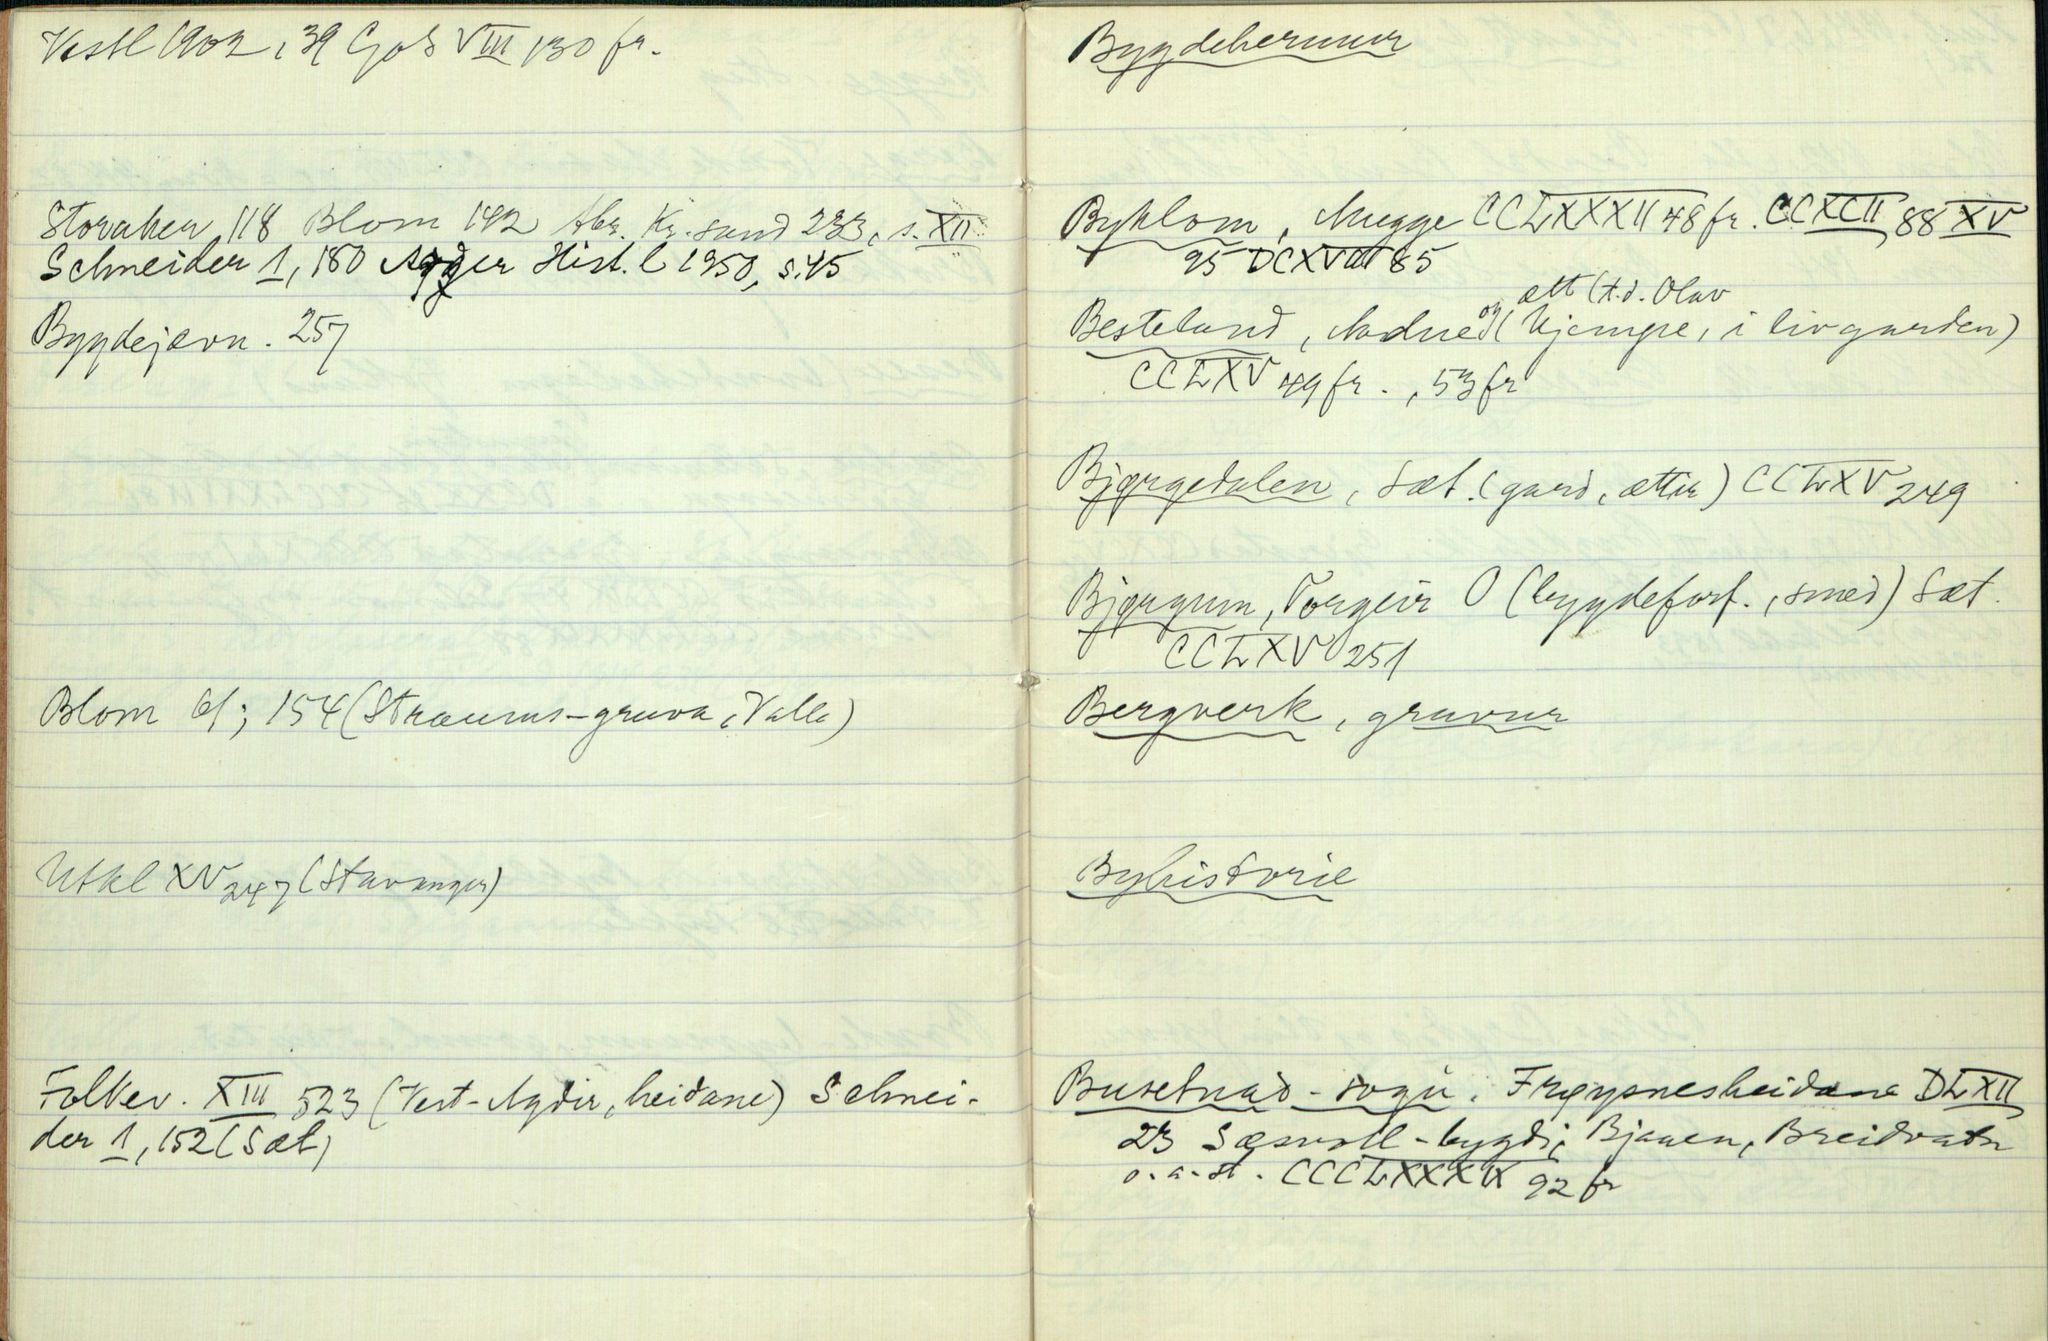 Vestl 1902, 39 Gols VIII 130 fr.
Storaker 118 Blom 142 Abr. Kr.sand 233, s. XII
Schneider 1, 180 Agder Hist. l 1950, s. 45
Bygdejævn. 257
Blom 61; 154 (Straums-gruva, Valle)
Utkl XV 247 (Stavanger)
Folkev. XIII 523 (Vest-Agdir, heidane) Schnei-
der 1, 152 (Sæt)
Bygdehermur
Byklom, Mugge CCLXXXII 48 fr. CCXCII 88 XV
95 DCXVIII 85
ætt (t.d. Olav
Besteland, Aadne og (kjempe, i livgarden)
CCLXV 49 fr., 53 fr
Bjørgedalen, Sæt. (gard, ættir) CCLXV 249
Bjørgum, Torgeir O (bygdeforf., smed) Sæt.
CCLXV 251
Bergverk, gruvur
Byhistorie
Busetnad-sogu. Frøysnesheidane DLXII
23 Sæsvatl-bygdi, Bjaaen, Breidvatn
o.a.st. CCCLXXXIX 92 fr